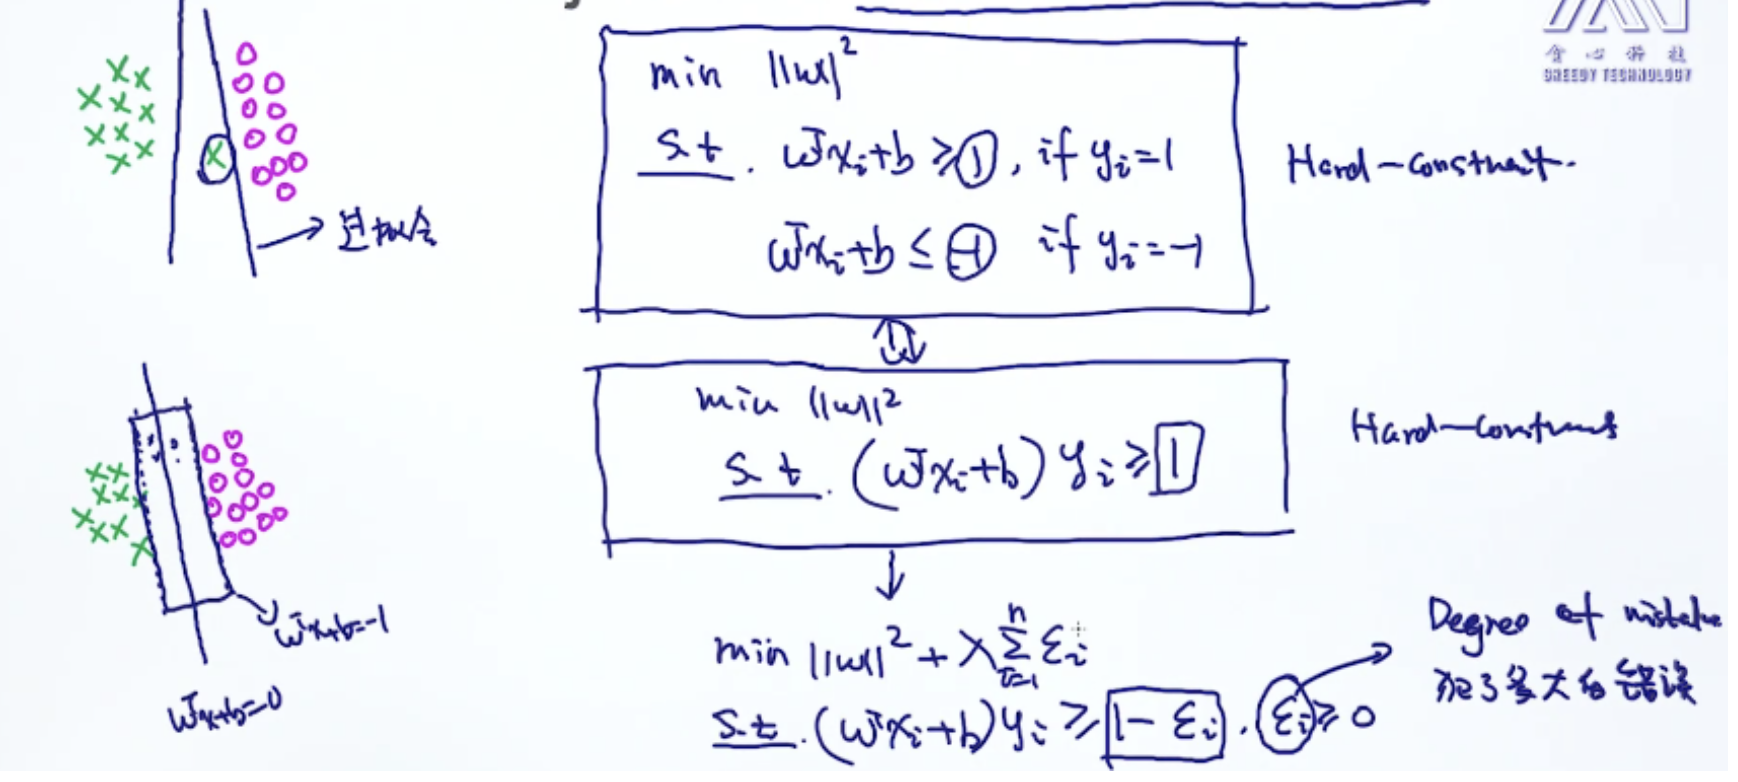 贪心科技
GREEDY TECHNOLOGY
min ||w||²
s.t. wᵀxᵢ+b ≥ 1, if yᵢ=1
wᵀxᵢ+b ≤ -1 if yᵢ=-1
Hard-constraint.
→ 过拟合
min ||w||²
s.t. (wᵀxᵢ+b) yᵢ ≥ 1
Hard-constraint
wᵀx+b=-1
wᵀx+b=0
min ||w||² + λ∑ⁿᵢ₌₁ εᵢ
s.t. (wᵀxᵢ+b)yᵢ ≥ 1-εᵢ, εᵢ ≥ 0
Degree of mistake
犯了多大的错误